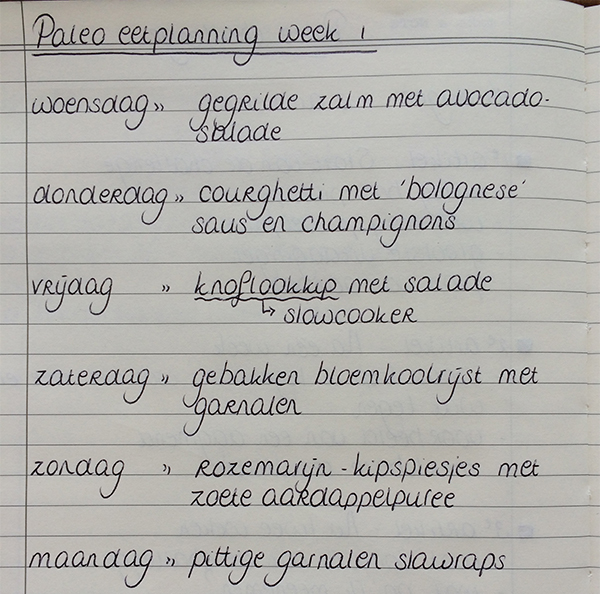 Paleo eetplanning week 1
woensdag » gegrilde zalm met avocado-
salade
donderdag » courghetti met 'bolognese'
saus en champignons
vrijdag » knoflookkip met salade
↳ slowcooker
zaterdag » gebakken bloemkoolrijst met
garnalen
zondag » rozemarijn-kipspiesjes met
zoete aardappelpuree
maandag » pittige garnalen slawraps